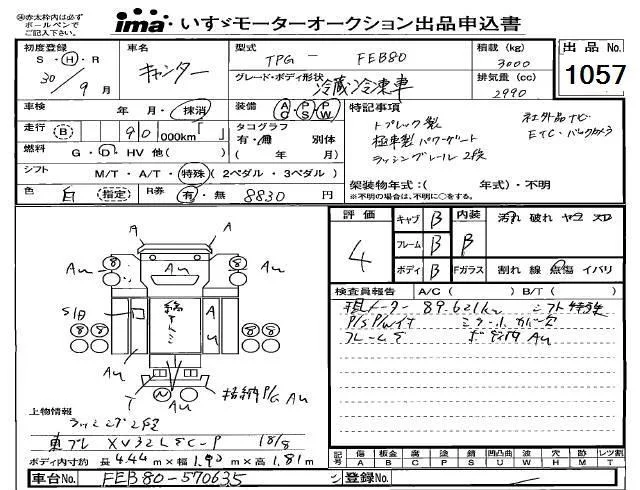 ㊟赤太枠内は必ず
ボールペンで
ご記入下さい。
ima いすゞモーターオークション出品申込書
初度登録
S・H・R
30/9月
車名
キャンター
型式
TPG-FEB80
グレード・ボディ形状
冷蔵冷凍車
積載(kg)
3000
排気量(cc)
2990
出品No.
1057
車検
年・月・抹消
装備 AC PS PW
走行(B)
90,000km「 」
タコグラフ
有・無 別体
( 年 月)
燃料
G・D・HV 他( )
シフト
M/T・A/T・特殊(2ペダル・3ペダル)
色
白(指定)
R券
有・無 8830 円
特記事項
トプレック製
極東製パワーゲート
ラッシングレール2段
社外品ナビ
ETC・バックカメラ
架装物年式:( 年式)・不明
※不明の場合は、不明に○をする。
評価
4
キャブ B
フレーム B
ボディ B
内装 B
Fガラス
汚れ 破れ ヤコ スロ
割れ 線 点傷 イバリ
検査員報告 A/C( ) B/T( )
現メーター 89.621km シフト特殊
P/S P/W イイ
A
A
8
8
8
8
8
8
Au
Au
Au
Au
Au
Au
格納P/G Au
T
上物情報
ラッシング2段
東プレ XV32LSC-P 18/8
ボディ内寸約 長4.44m×幅1.90m×高1.81m
記号
傷 板金 腐 塗 錆 凹凸曲 波 穴 跡 レツ割
A B C P S U W H M T
車台No. FEB80-570635
登録No.